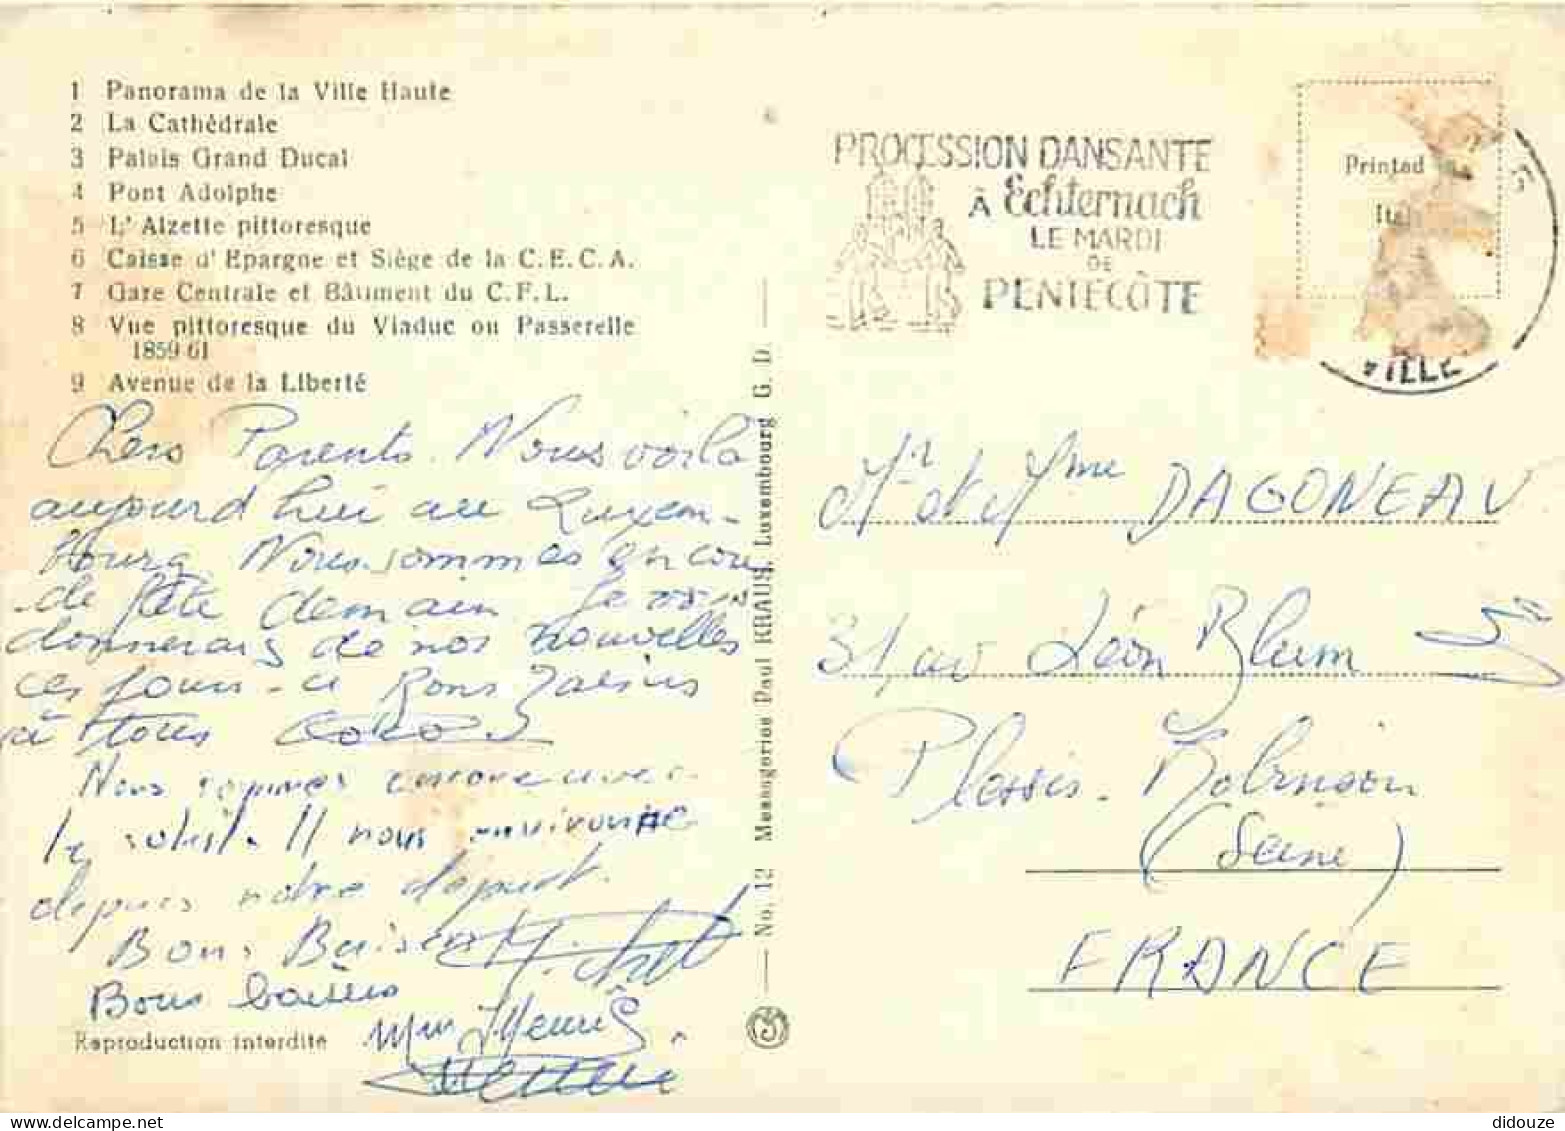 1 Panorama de la Ville Haute
2 La Cathédrale
3 Palais Grand Ducal
4 Pont Adolphe
5 L'Alzette pittoresque
6 Caisse d'Epargne et Siège de la C.E.C.A.
7 Gare Centrale et Bâtiment du C.F.L.
8 Vue pittoresque du Viaduc ou Passerelle
1859-61
9 Avenue de la Liberté
Chers Parents. Nous voilà
aujourd hui au Luxem-
bourg Nous sommes encore
de fête demain Je vous
donnerais de nos nouvelles
ces jours-ci Bons Baisers
à tous
Nous sommes encore avec
le soleil. Il nous environne
depuis notre depart.
Bons Baisers
Bons baisers
Reproduction interdite
No. 12 Messageries Paul KRAUS, Luxembourg G. D.
PROCESSION DANSANTE
À Echternach
LE MARDI
DE
PENTECÔTE
Printed
VILLE
Mr et Mme DAGONEAU
31, av Léon Blum
Plessis-Robinson
(Seine)
FRANCE
didouze